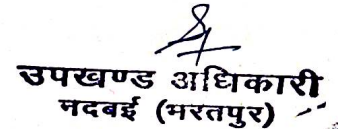 उपखण्ड अधिकारी
नदबई (भरतपुर)